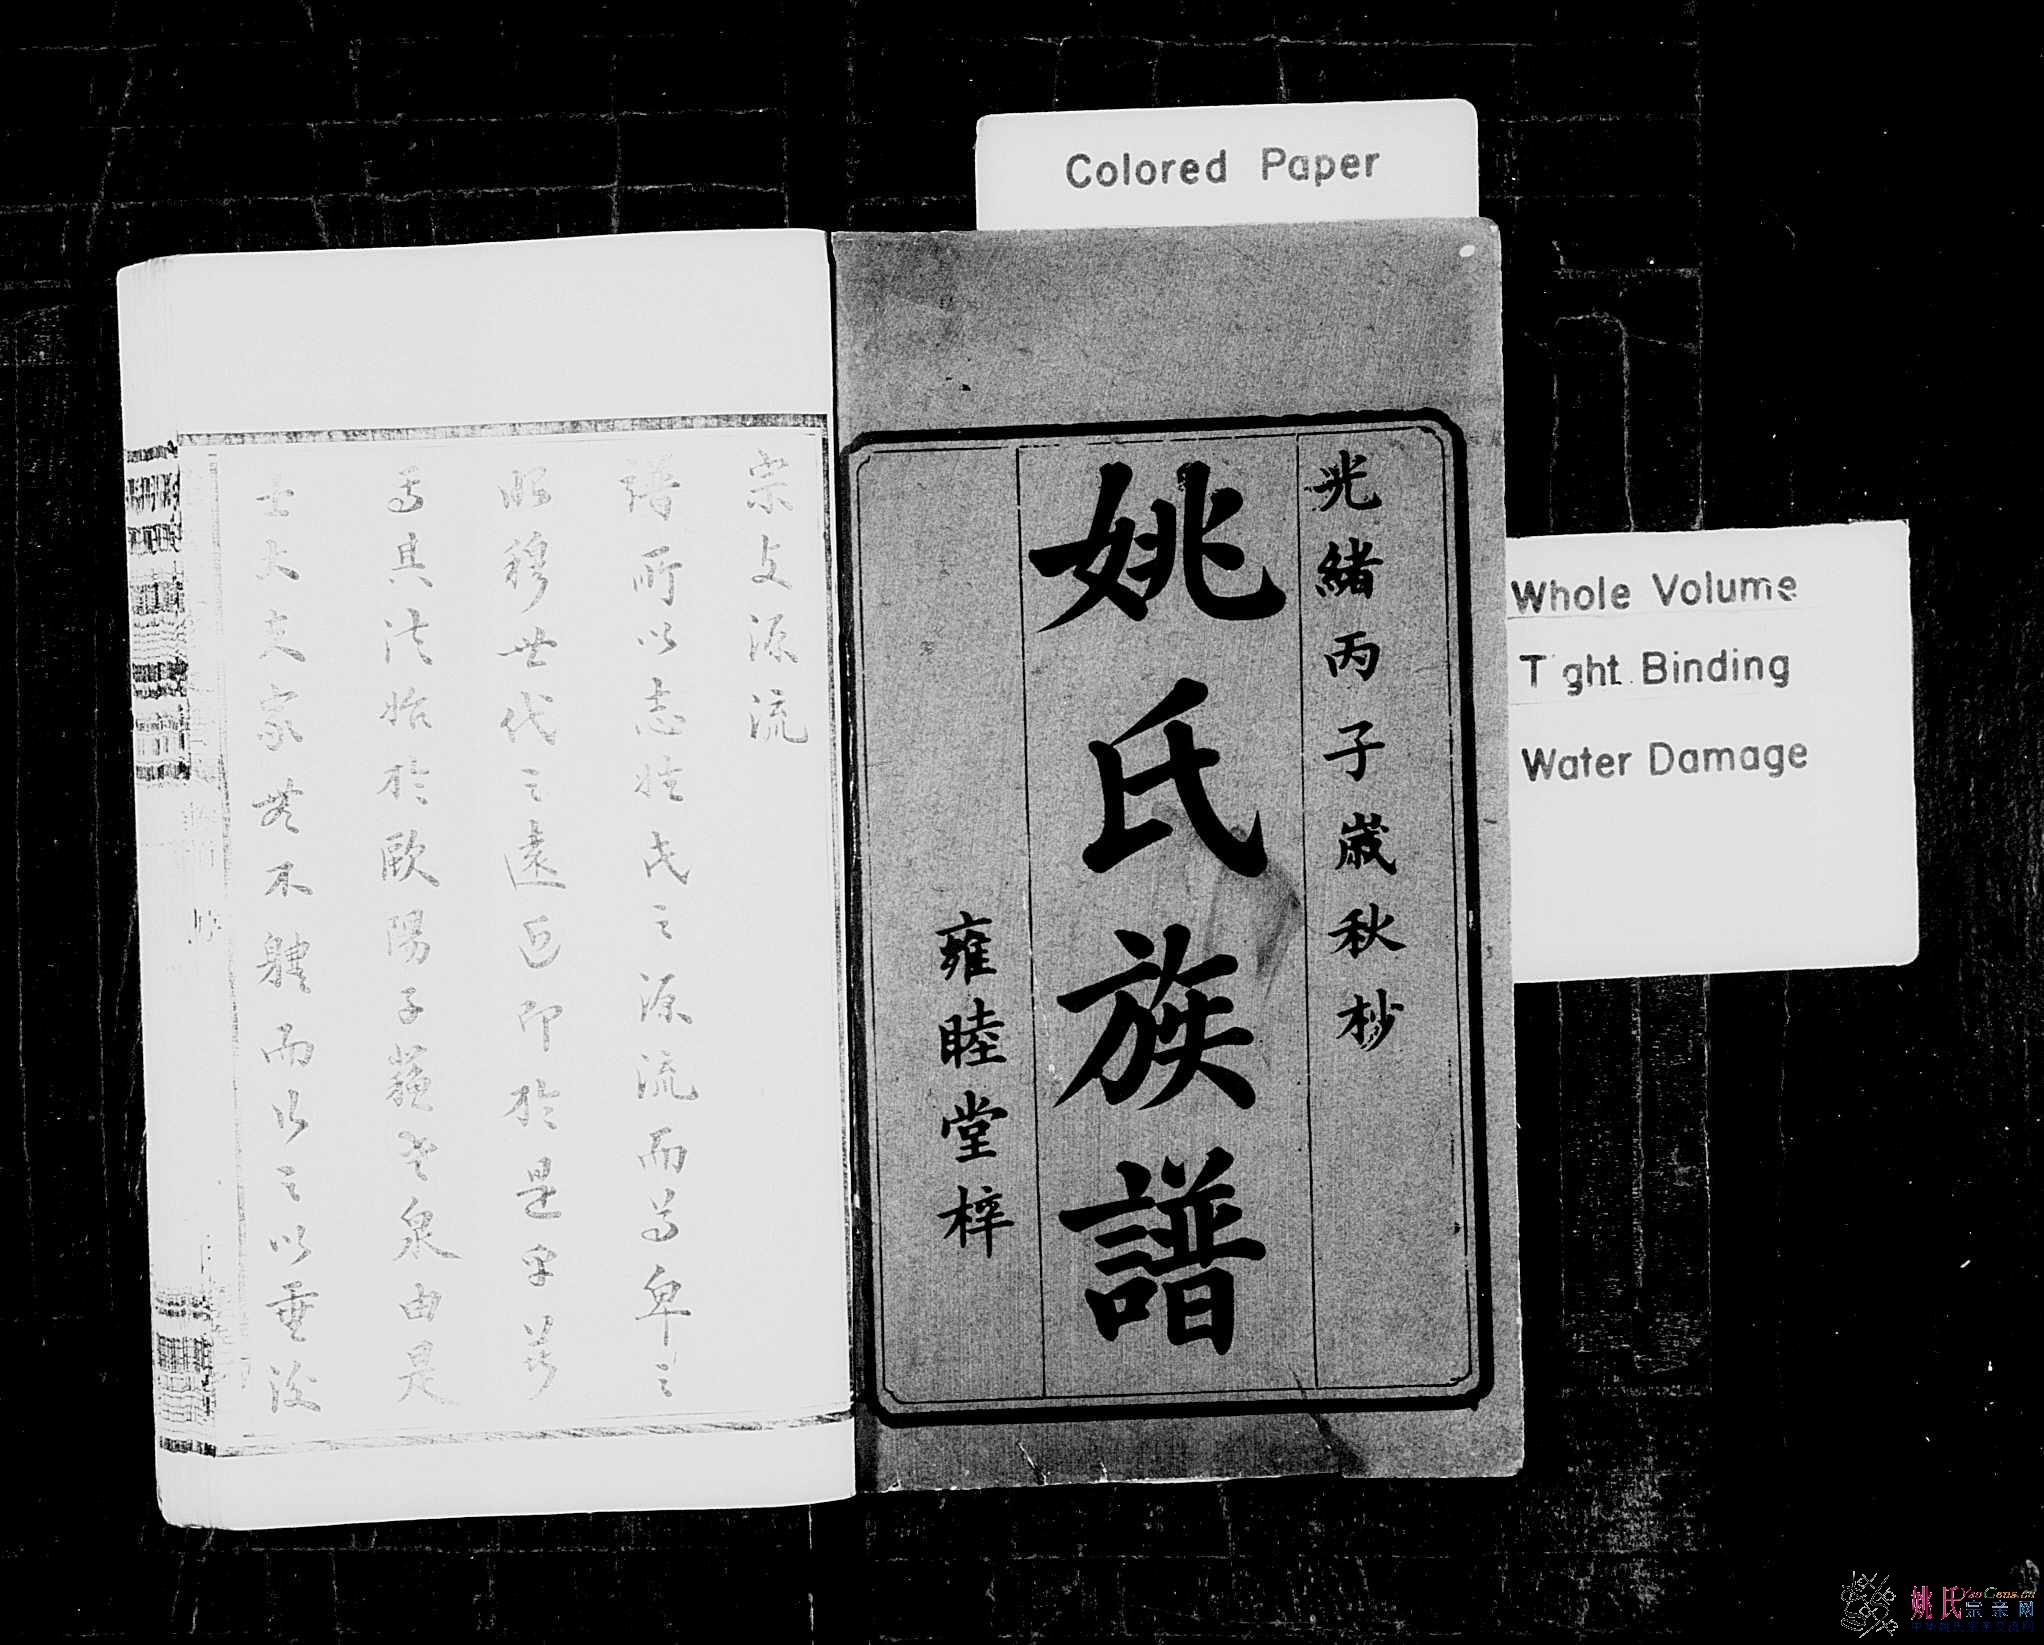 Colored Paper
光緒丙子歲秋杪
姚氏族譜
雍睦堂梓
Whole Volume
Tght Binding
Water Damage
宗支源流
譜所以志姓氏之源流而為卑之
昭穆世代之遠近即於是乎著
焉其法始於歐陽子蘇老泉由是
士大夫家無不體而行之以垂後
序
姚氏宗亲网
YaoGens.cn